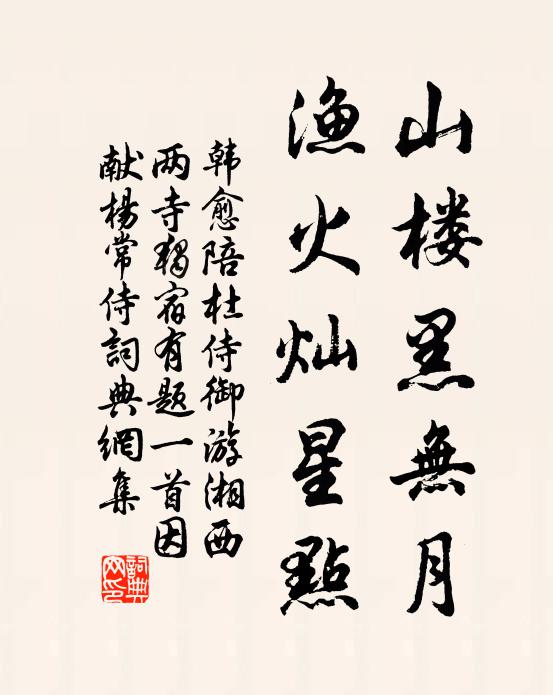 山楼黑無月
渔火灿星點
韩愈陪杜侍御游湘西
两寺独宿有题一首因
献楊常侍詞典網集
詞典
网印